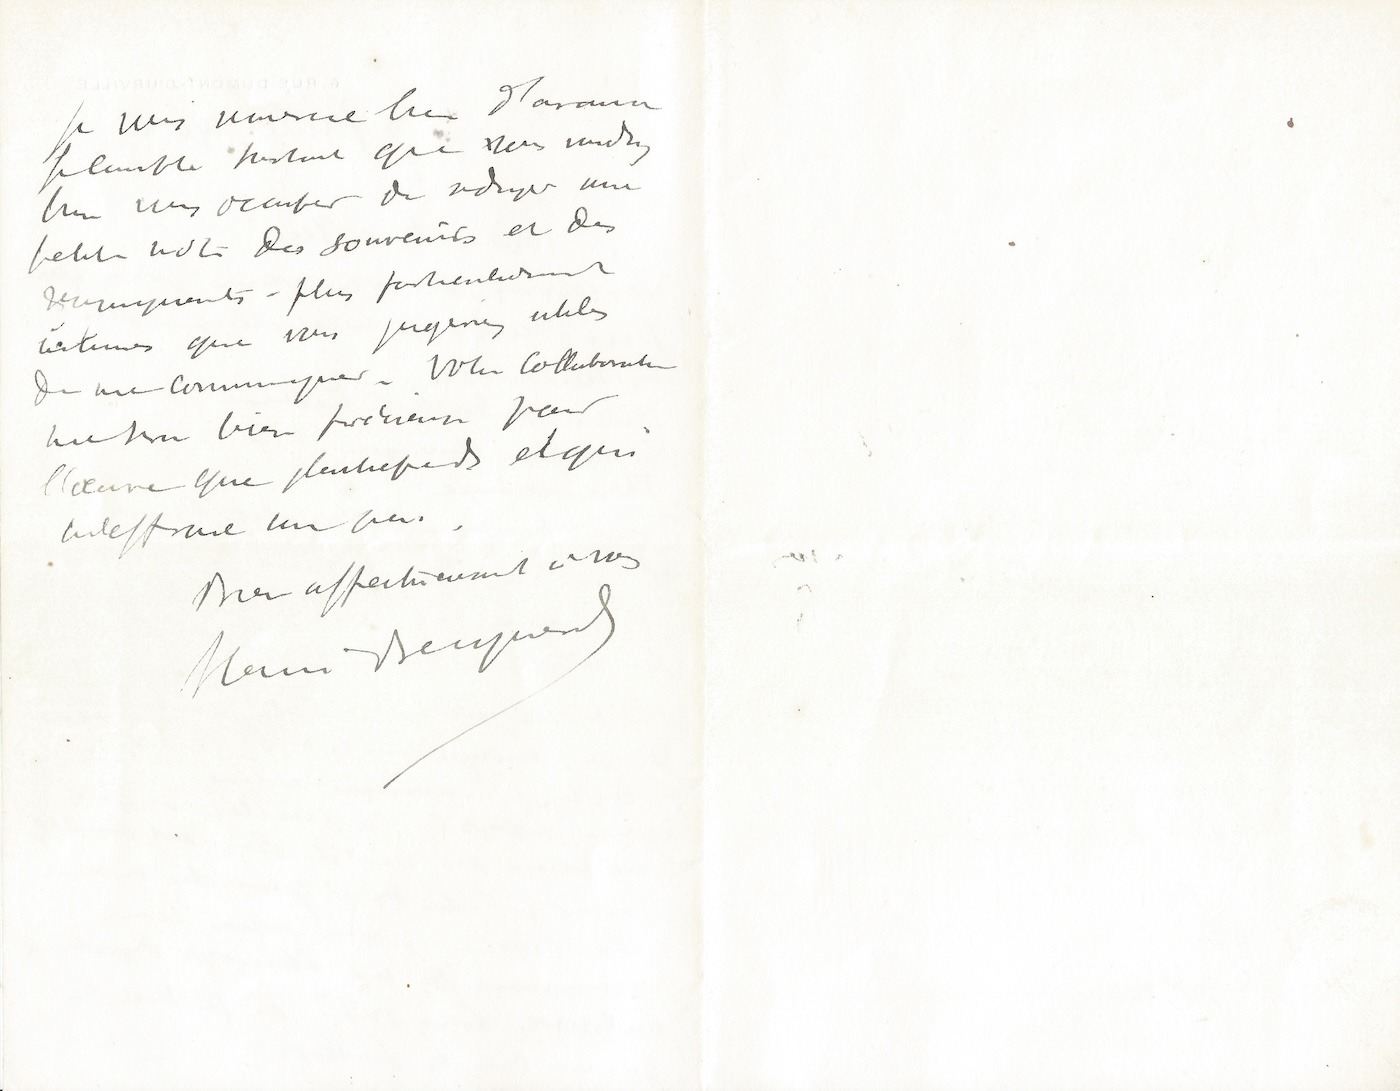 6, RUE DUMONT-D'URVILLE
Je vous remercie bien d'avance
de l'instant que vous voudrez
bien vous occuper de rédiger une
petite note des souvenirs et des
renseignements - plus particulièrement
intimes que vous jugeriez utiles
de me communiquer. Votre collaboration
me sera bien précieuse pour
l'œuvre que j'entreprends et qui
m'effraie un peu.
Bien affectueusement à vous
Henri Becquerel